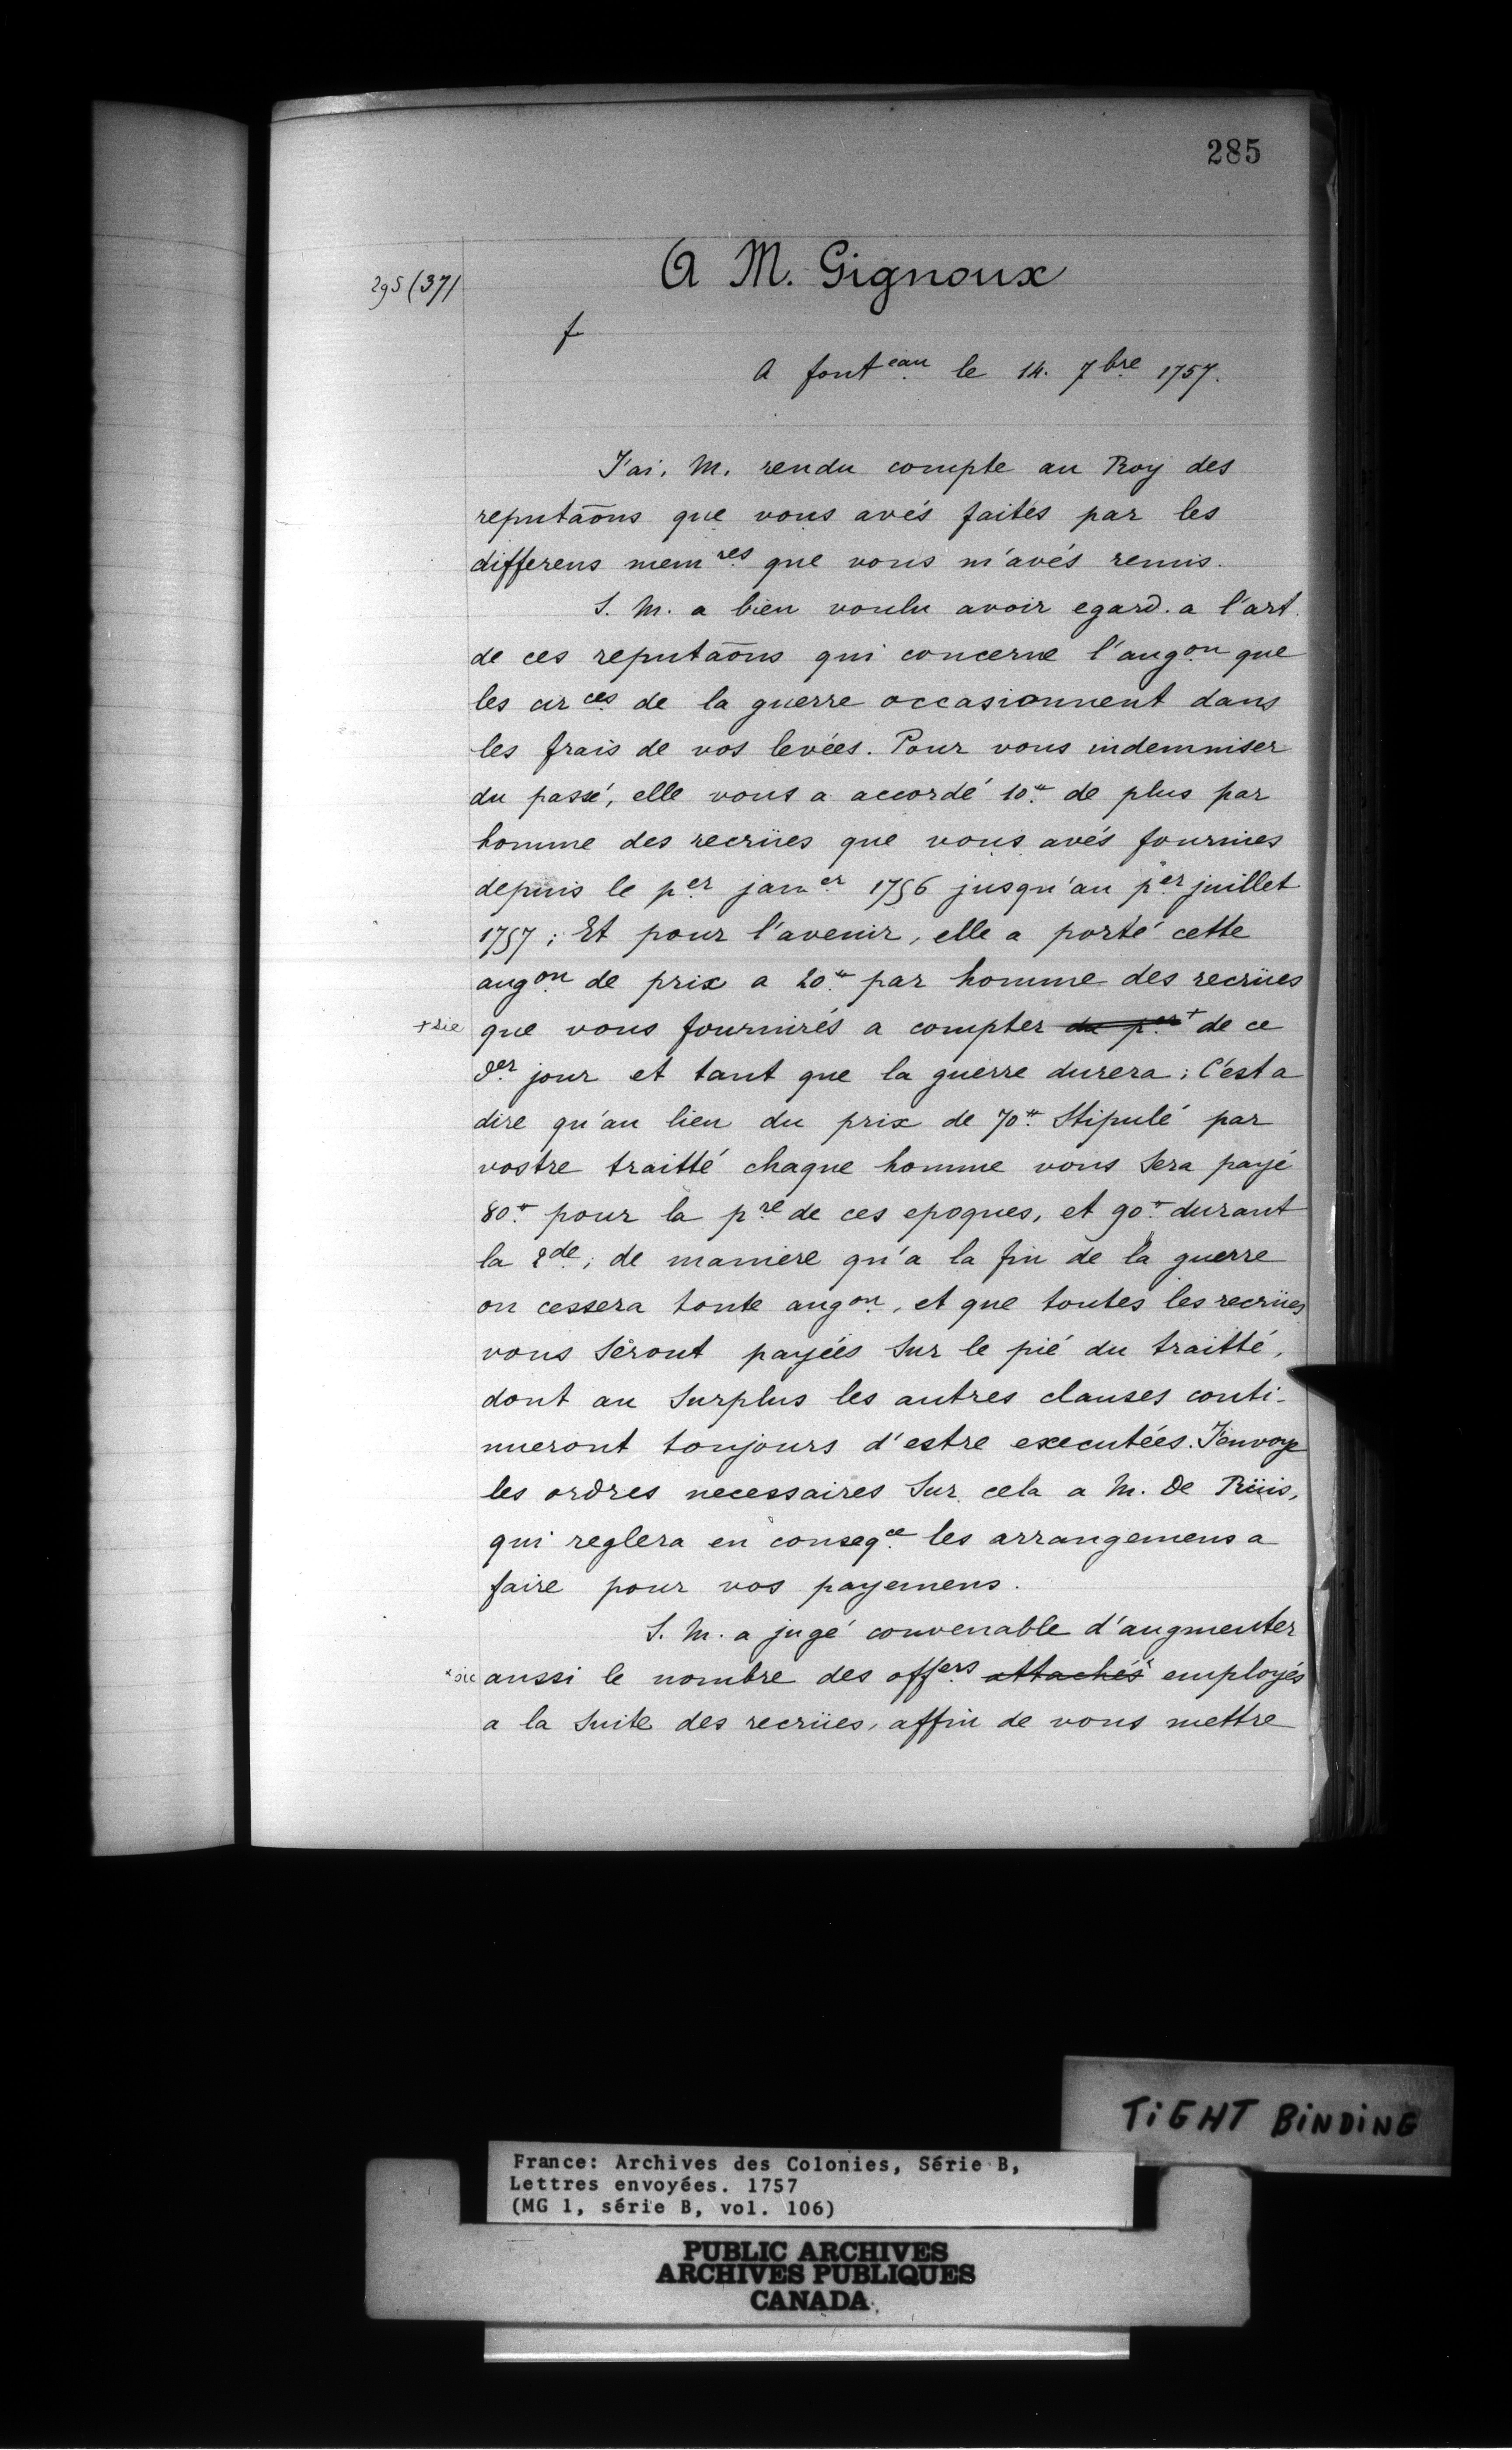 285
A M. Gignoux
295 (37)
f
A font eau le 14. 7bre 1757.
J'ai, M. rendu compte au Roy des
reputaõns que vous avés faites par les
differens mem res que vous m'avés remis.
S. M. a bien voulu avoir egard. a l'art.
de ces reputaõns qui concerne l'augon que
les cir ces de la guerre occasionnent dans
les frais de vos levées. Pour vous indemniser
du passé, elle vous a accordé 10.tt de plus par
homme des recrües que vous avés fournies
depuis le per jan er 1756 jusqu'au per juillet
1757; Et pour l'avenir, elle a porté cette
augon de prix a 20.tt par homme des recrües
+ sic que vous fournirés a compter du per + de ce
der jour et tant que la guerre durera; C'est a
dire qu'au lieu du prix de 70.tt Stipulé par
vostre traitté chaque homme vous Sera payé
80.tt pour la pre de ces epoques, et 90.tt durant
la 2de; de maniere qu'a la fin de la guerre
on cessera toute augon, et que toutes les recrües
vous Seront payées Sur le pié du traitté,
dont au Surplus les autres clauses conti-
nueront toujours d'estre executées. J'envoye
les ordres necessaires Sur cela a M. De Rüis,
qui reglera en conseqce les arrangemens a
faire pour vos payemens.
S. M. a jugé convenable d'augmenter
x sic aussi le nombre des offers attachés x employés
a la Suite des recrües, affin de vous mettre
TIGHT BINDING
France: Archives des Colonies, Série B,
Lettres envoyées. 1757
(MG 1, série B, vol. 106)
PUBLIC ARCHIVES
ARCHIVES PUBLIQUES
CANADA